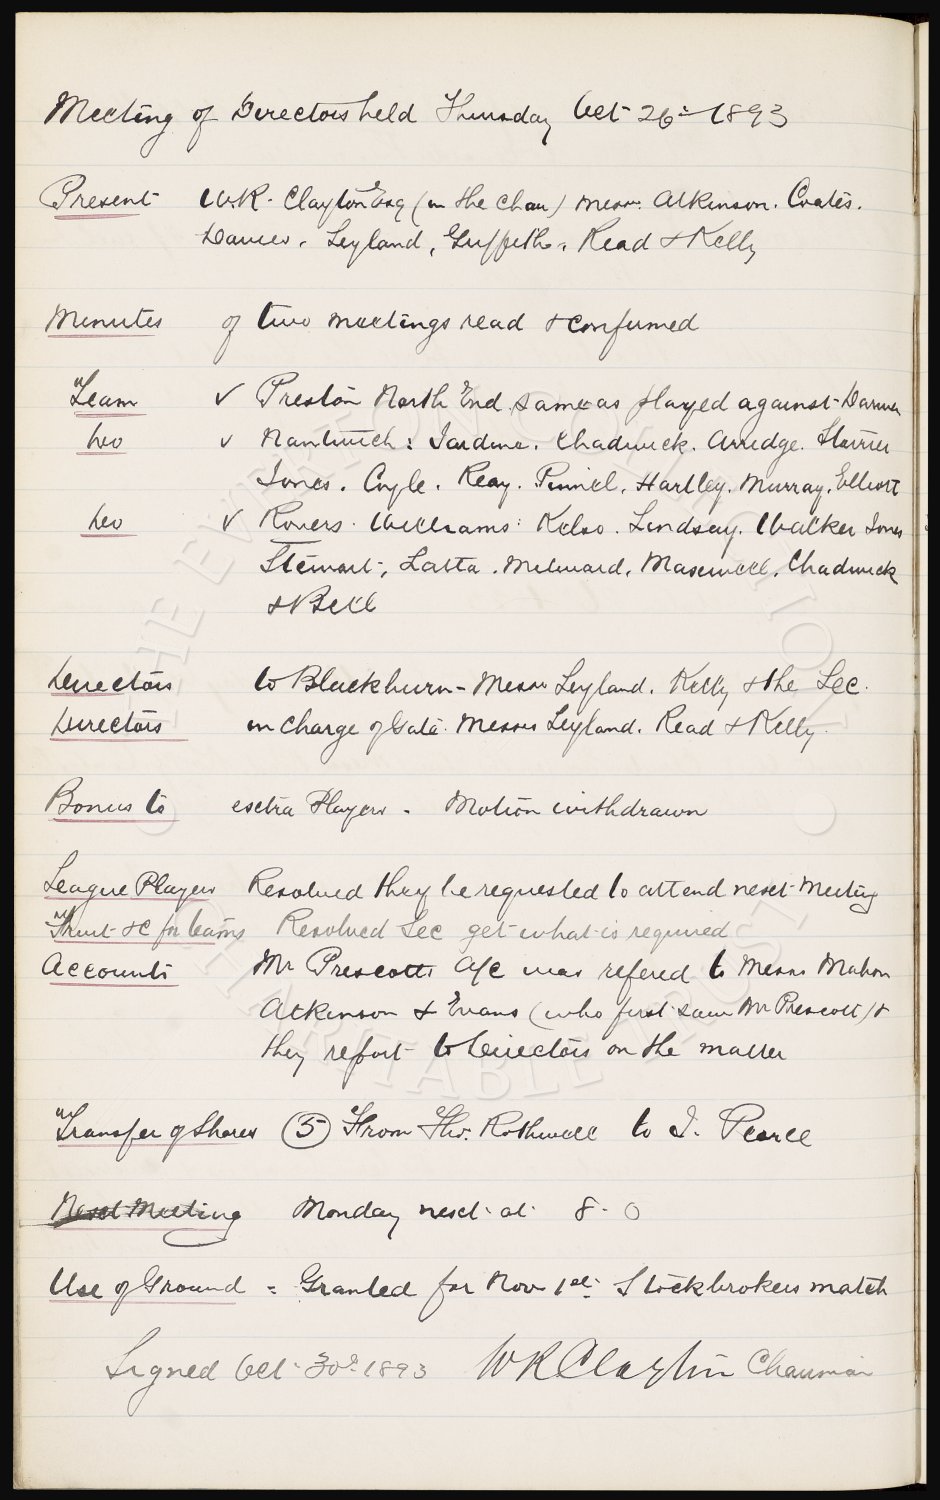 Meeting of Directors held Thursday Oct 26th 1893
Present W.R. Clayton Esq (in the Chair) Messrs. Atkinson. Coates.
Davies, Leyland, Griffiths, Read & Kelly
Minutes of two meetings read & confirmed
Team ✓ Preston North End same as played against Darwen
Do ✓ Nantwich: Jardine. Chadwick. Arridge. Storrier
Jones. Coyle. Reay. Pinnel. Hartley. Murray. Elliott
Do ✓ Rovers. Williams: Kelso. Lindsay. Walker Jones
Stewart, Latta. Milward, Maxwell, Chadwick
& Bell
Directors to Blackburn - Messrs Leyland. Kelly & the Sec.
Directors in charge of Gate. Messrs Leyland. Read & Kelly.
Bonus to extra Players - Motion withdrawn
League Players Resolved they be requested to attend next Meeting
Fruit &c for teams Resolved Sec get what is required
Accounts Mr Prescotts A/c was refered to Messrs Mahon
Atkinson & Evans (who first saw Mr Prescott) &
they report to Directors on the matter
Transfer of Shares (5) From Thos. Rothwell to J. Pearce
Next Meeting Monday next at 8-0
Use of Ground = Granted for Nov 1st Stockbrokers match
Signed Oct 30th 1893 WR Clayton Chairman
THE EVERTON COLLECTION
CHARITABLE TRUST